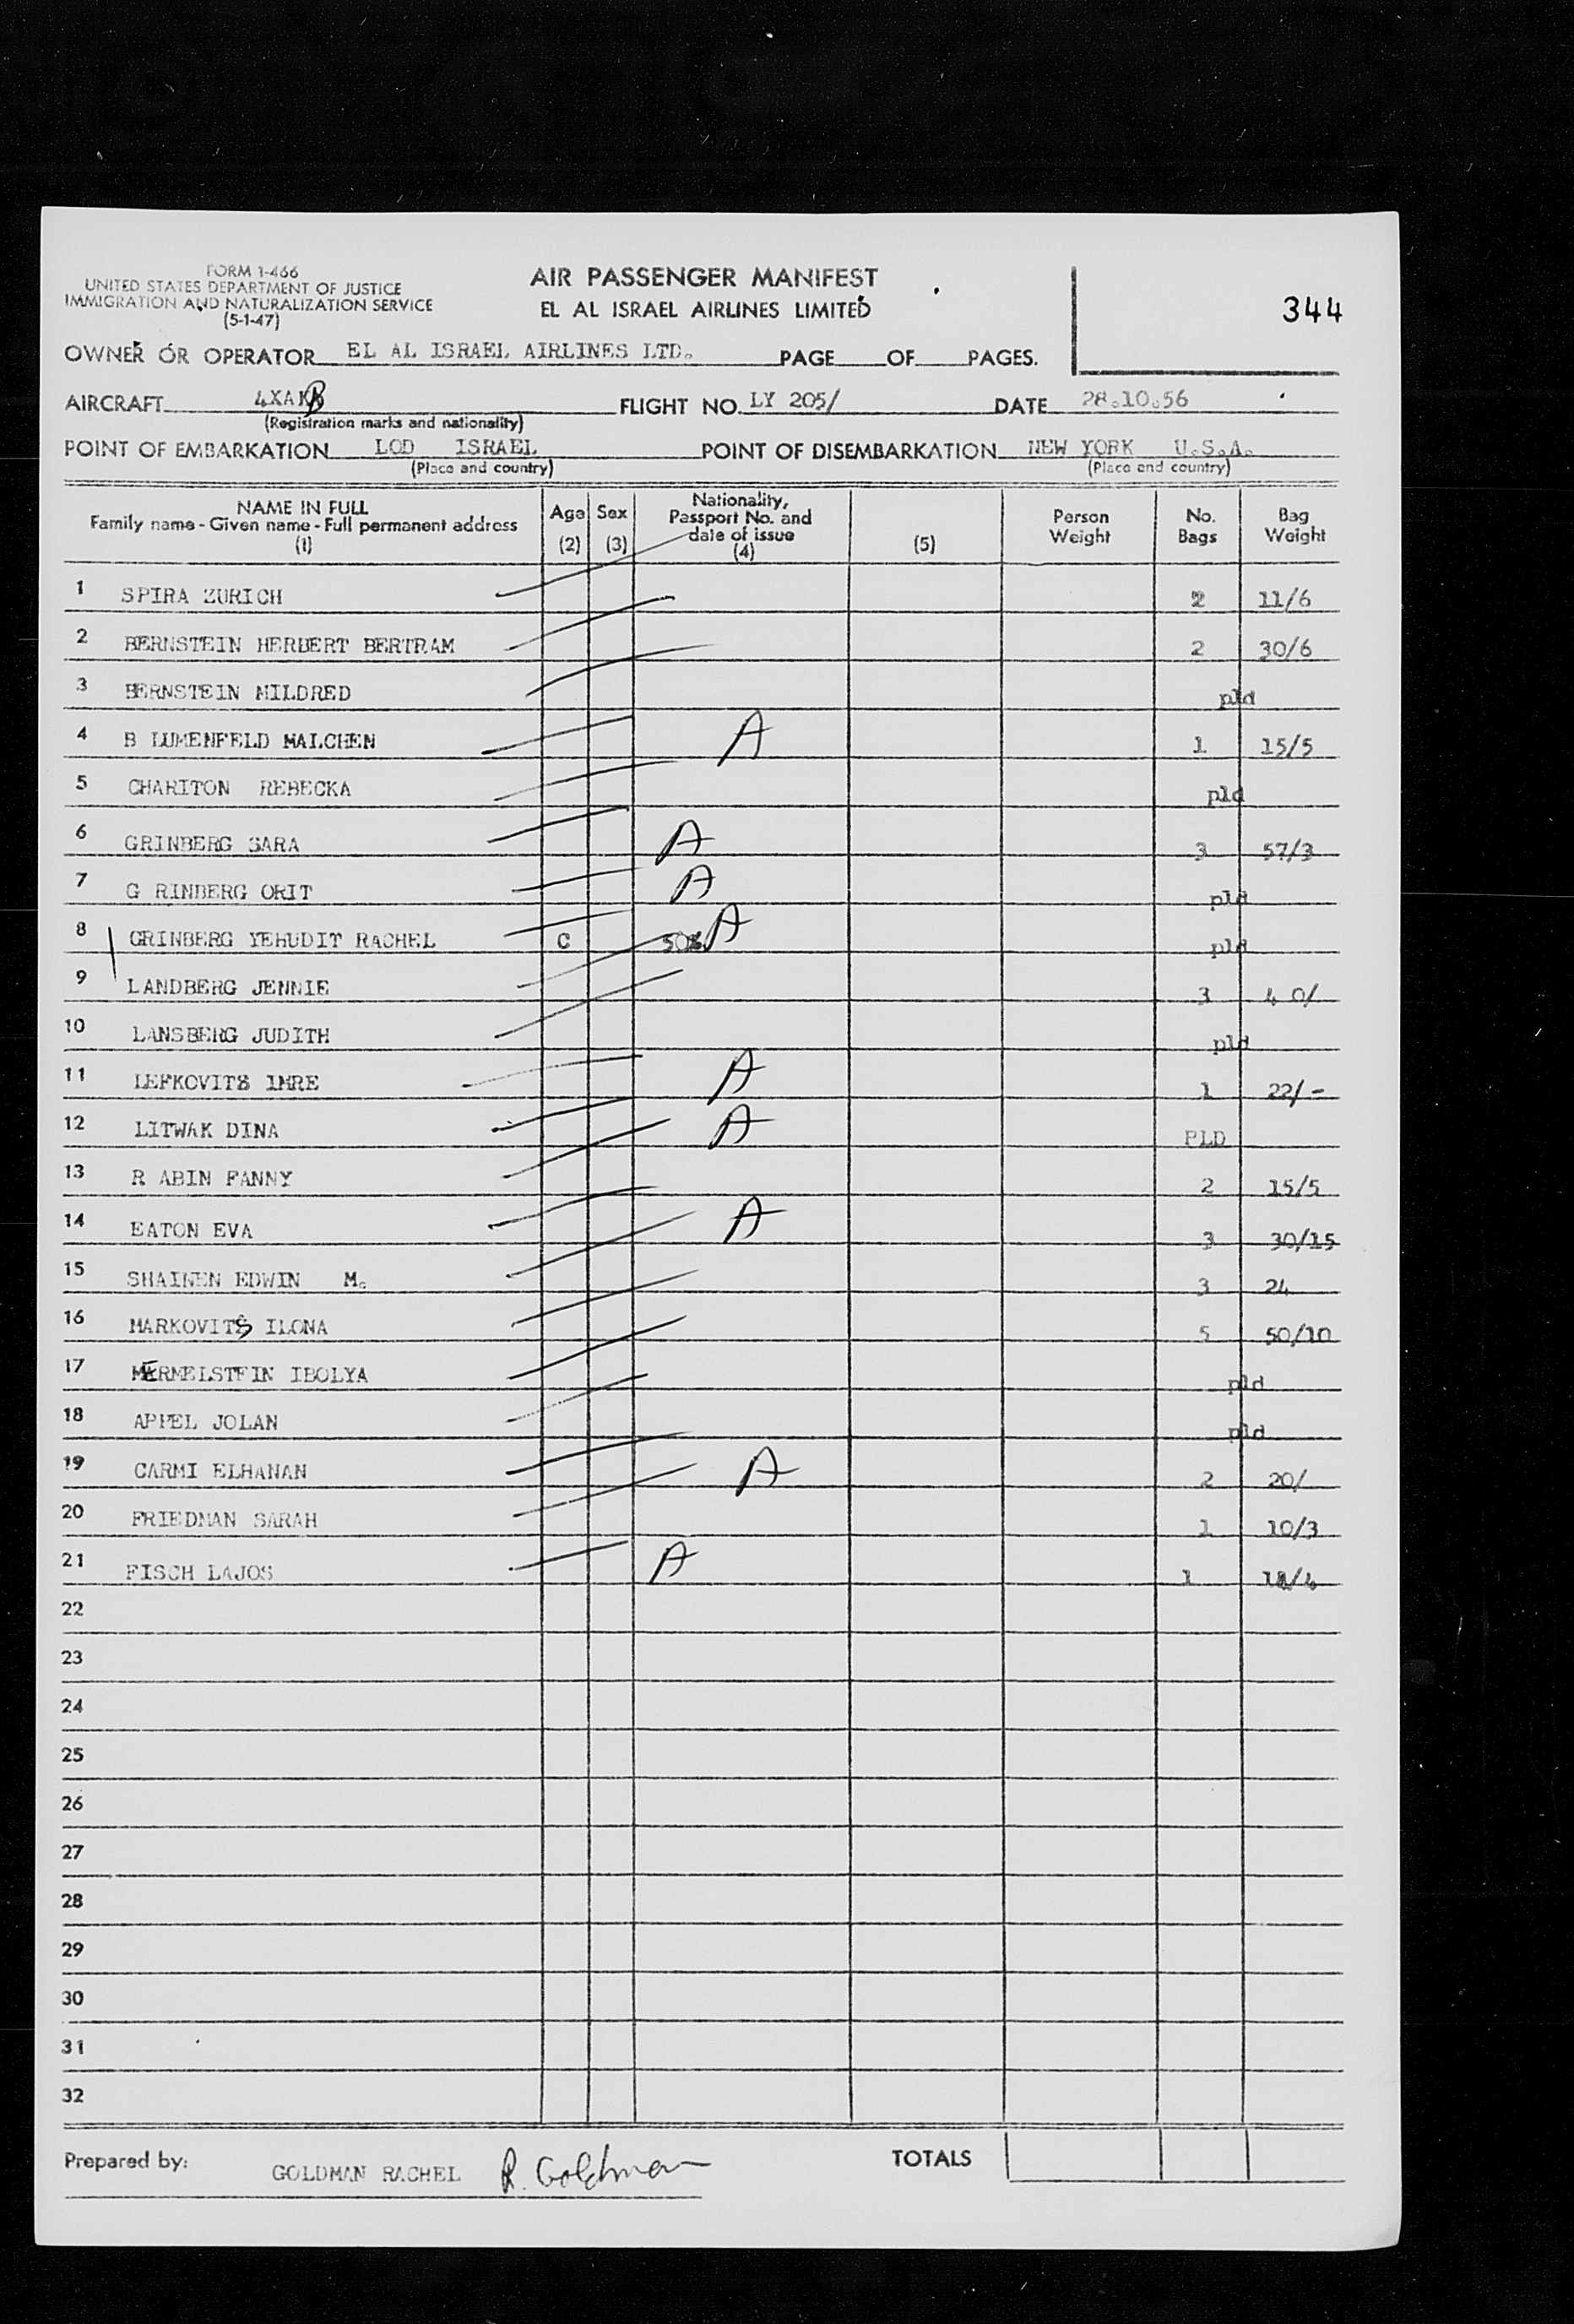 FORM 1-466
UNITED STATES DEPARTMENT OF JUSTICE
IMMIGRATION AND NATURALIZATION SERVICE
(5-1-47)
AIR PASSENGER MANIFEST
EL AL ISRAEL AIRLINES LIMITED
344
OWNER OR OPERATOR EL AL ISRAEL AIRLINES LTD. PAGE OF PAGES.
AIRCRAFT 4XAKB FLIGHT NO. LY 205/ DATE 28.10.56
(Registration marks and nationality)
POINT OF EMBARKATION LOD ISRAEL POINT OF DISEMBARKATION NEW YORK U.S.A.
(Place and country) (Place and country)
NAME IN FULL
Family name - Given name - Full permanent address
(1)
Age
(2)
Sex
(3)
Nationality,
Passport No. and
date of issue
(4)
(5)
Person
Weight
No.
Bags
Bag
Weight
1 SPIRA ZURICH 2 11/6
2 BERNSTEIN HERBERT BERTRAM 2 30/6
3 BERNSTEIN MILDRED pld
4 B LUMENFELD MALCHEN A 1 15/5
5 CHARITON REBECKA pld
6 GRINBERG SARA A 3 57/3
7 G RINBERG ORIT A pld
8 GRINBERG YEHUDIT RACHEL C 50% A pld
9 LANDBERG JENNIE 3 4 0/
10 LANSBERG JUDITH pld
11 LEFKOVITS IMRE A 1 22/-
12 LITWAK DINA A PLD
13 R ABIN FANNY 2 15/5
14 EATON EVA A 3 30/15
15 SHAINEN EDWIN M. 3 24
16 MARKOVITS ILONA 5 50/10
17 MERMELSTEIN IBOLYA pld
18 APPEL JOLAN pld
19 CARMI ELHANAN A 2 20/
20 FRIEDMAN SARAH 1 10/3
21 FISCH LAJOS A 1 18/4
22
23
24
25
26
27
28
29
30
31
32
Prepared by: GOLDMAN RACHEL R. Goldman TOTALS